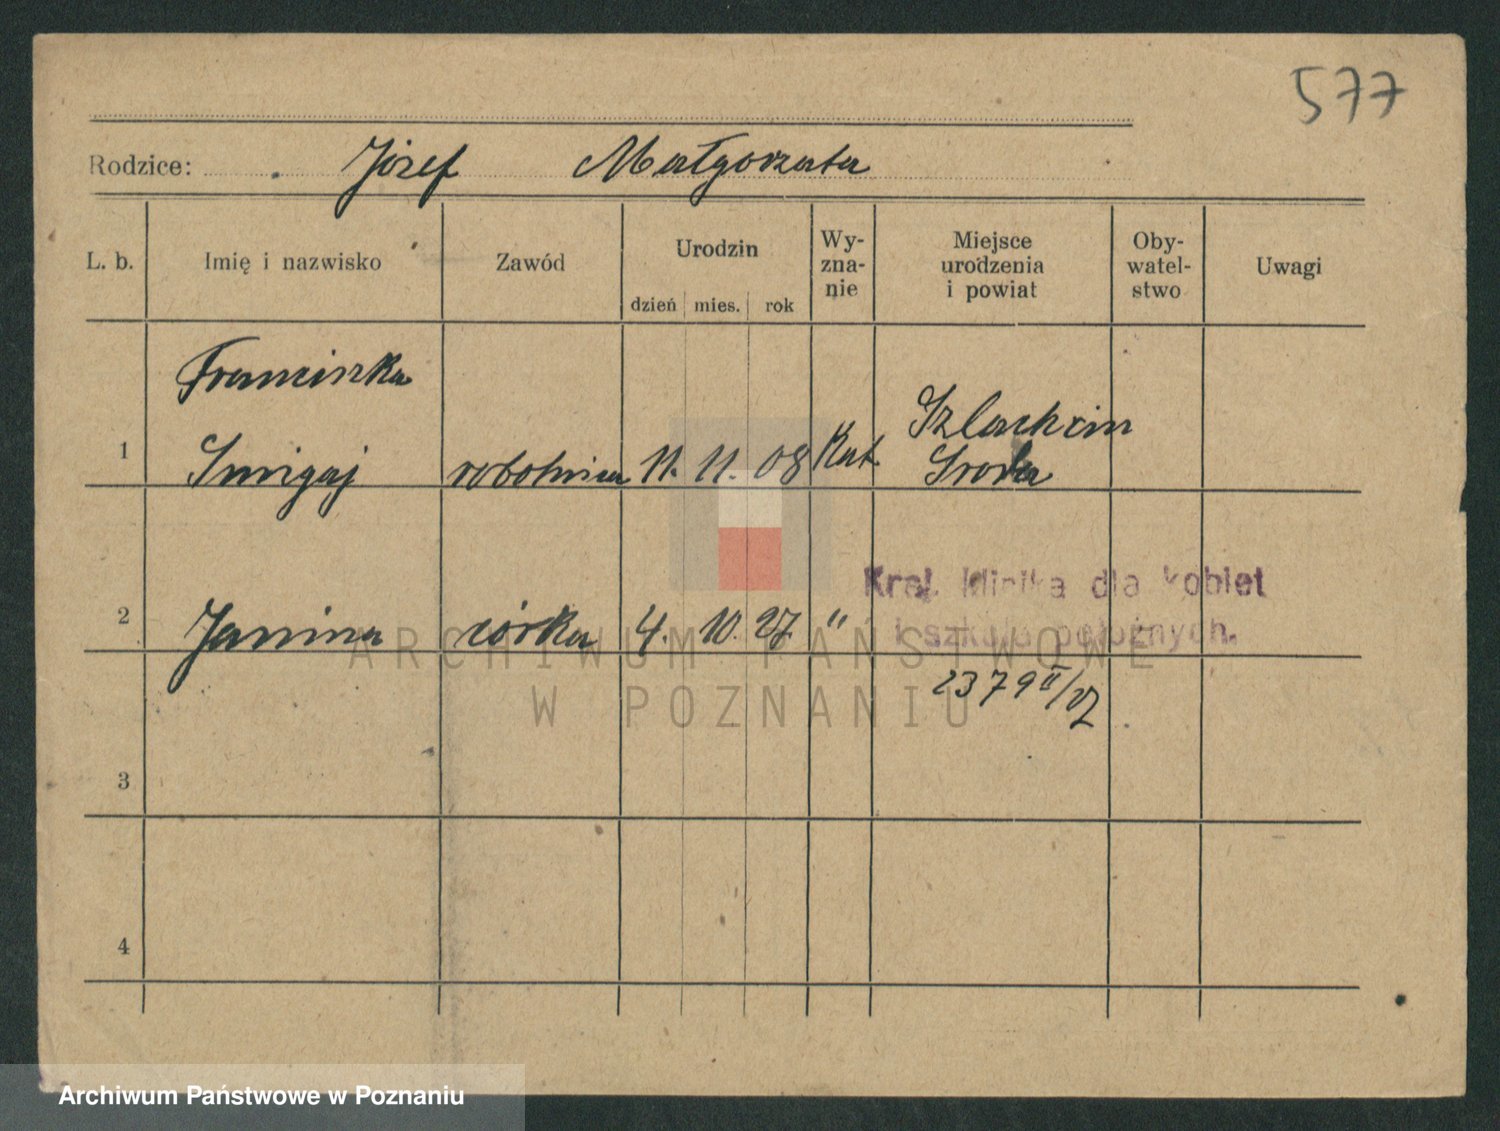 577
Rodzice: Józef Małgorzata
L. b. Imię i nazwisko Zawód Urodzin Wy-zna-nie Miejsce urodzenia i powiat Oby-watel-stwo Uwagi
dzień mies. rok
Franciszka
1 Smigaj robotnica 11. 11. 08 Kat. Szlachcin
Sroda
Kraj. klinika dla kobiet
i szkoła położnych.
2 Janina córka 4. 10. 27. "
2379 II/27
3
4
ARCHIWUM PAŃSTWOWE
W POZNANIU
Archiwum Państwowe w Poznaniu